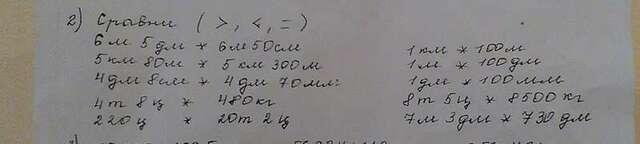 2) Сравни ( >, <, = )
6м 5дм * 6м 50см
5км 80м * 5 км 300м
4дм 8см * 4 дм 70мм
4т 8 ц * 480кг
220ц * 20т 2 ц
1 км * 100м
1м * 100дм
1дм * 100мм
8т 5ц * 8500 кг
7м 3дм * 730 дм